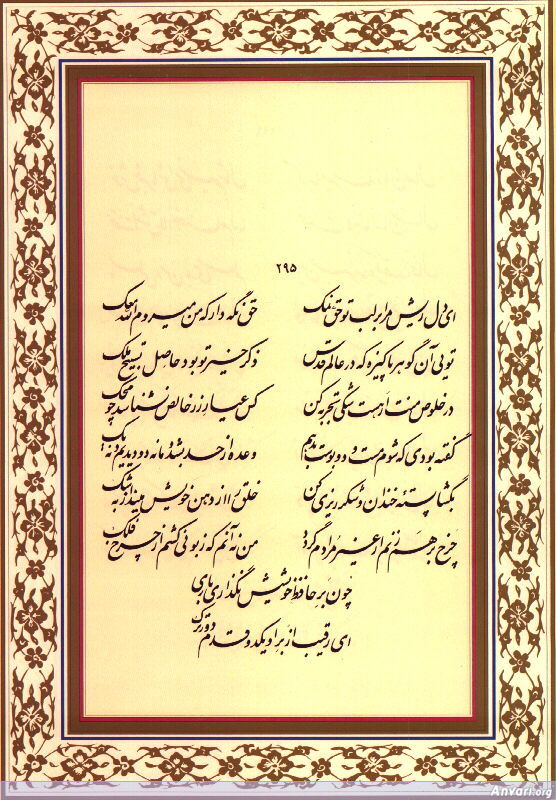 ۲۹۵
ای دل ریش مرا بر لب تو حق نمک حق نگه دار که من میروم الله معک
تویی آن گوهر پاکیزه که در عالم قدس ذکر خیر تو بود حاصل تسبیح ملک
در خلوص منت ار هست شکی تجربه کن کس عیار زر خالص نشناسد چو محک
گفته بودی که شوم مست و دو بوست بدهم وعده از حد بشد و ما نه دو دیدیم و نه یک
بگشا پسته خندان و شکر ریزی کن خلق را از دهن خویش مینداز به شک
چرخ بر هم زنم ار غیر مرادم گردد من نه آنم که زبونی کشم از چرخ فلک
چون بر حافظ خویشش نگذاری باری
ای رقیب از بر او یک دو قدم دورترک
Anvari.org